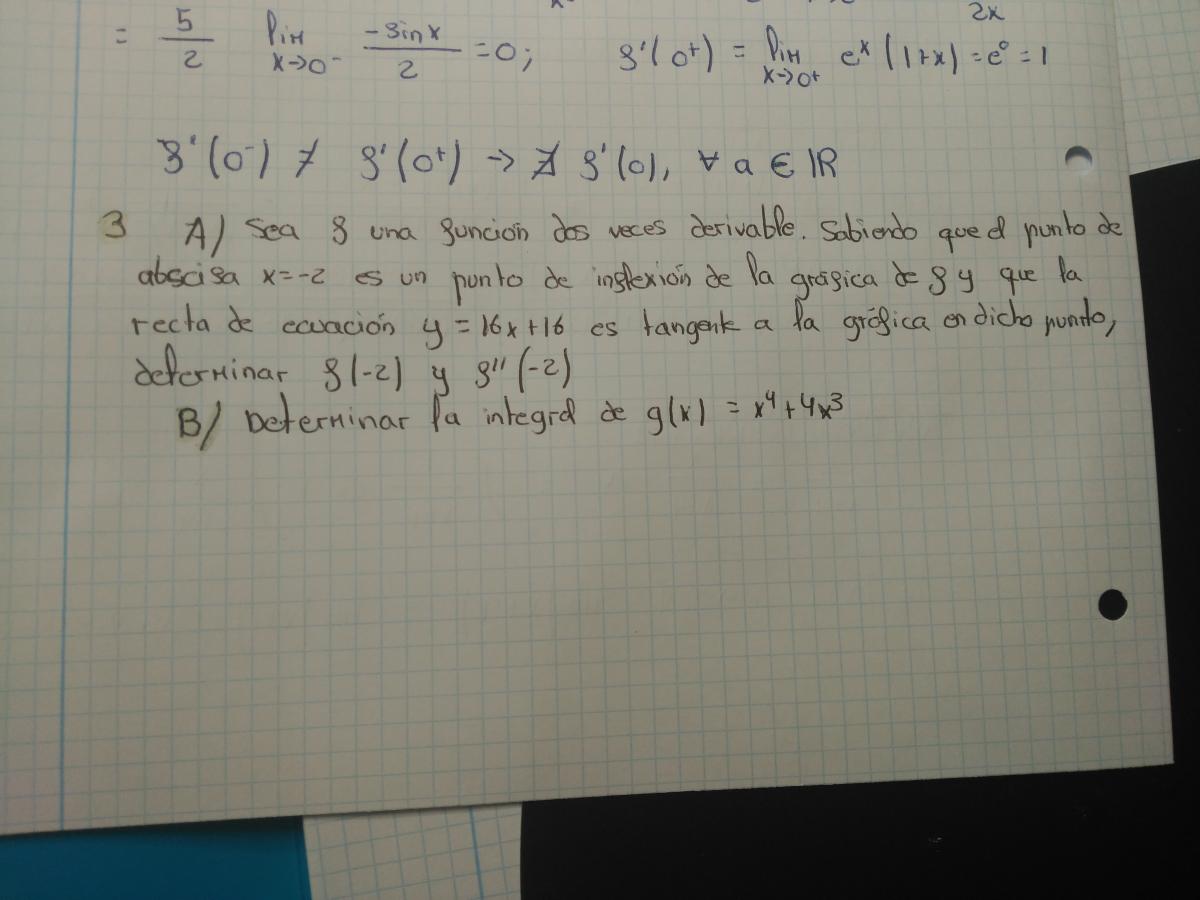 2x
= 5/2 lim x→0⁻ -sinx/2 = 0; f'(0⁺) = lim x→0⁺ eˣ (1+x) = e⁰ = 1
f'(0⁻) ≠ f'(0⁺) → ∄ f'(0), ∀ a ∈ ℝ
3 A/ Sea f una función dos veces derivable. Sabiendo que el punto de
abscisa x=-2 es un punto de inflexión de la gráfica de f y que la
recta de ecuación y = 16x+16 es tangente a la gráfica en dicho punto,
determinar f(-2) y f''(-2)
B/ Determinar la integral de g(x) = x⁴+4x³